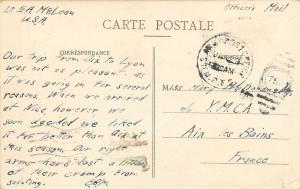 Lt. E.A. McLean
U.S.A.
Officer's Mail
CARTE POSTALE
CORRESPONDANCE
Our trip from Aix to Lyon
was not as pleasant as
it was going in for several
reasons. When we arrived
at Nice, however we
soon decided we liked
it far better than Aix at
this season. Our right
arms have lost a little
of their cramp from
saluting.
Miss
c/o Y.M.C.A
Aix les Bains
France